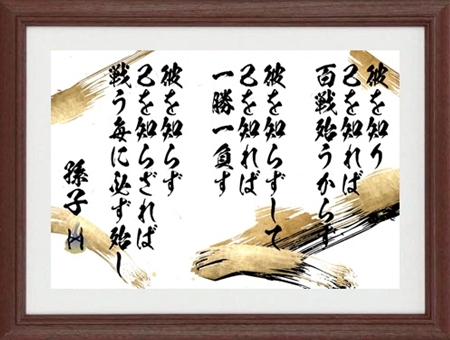 彼を知り
己を知れば
百戦殆うからず
彼を知らずして
己を知れば
一勝一負す
彼を知らず
己を知らざれば
戦う毎に必ず殆し
孫子